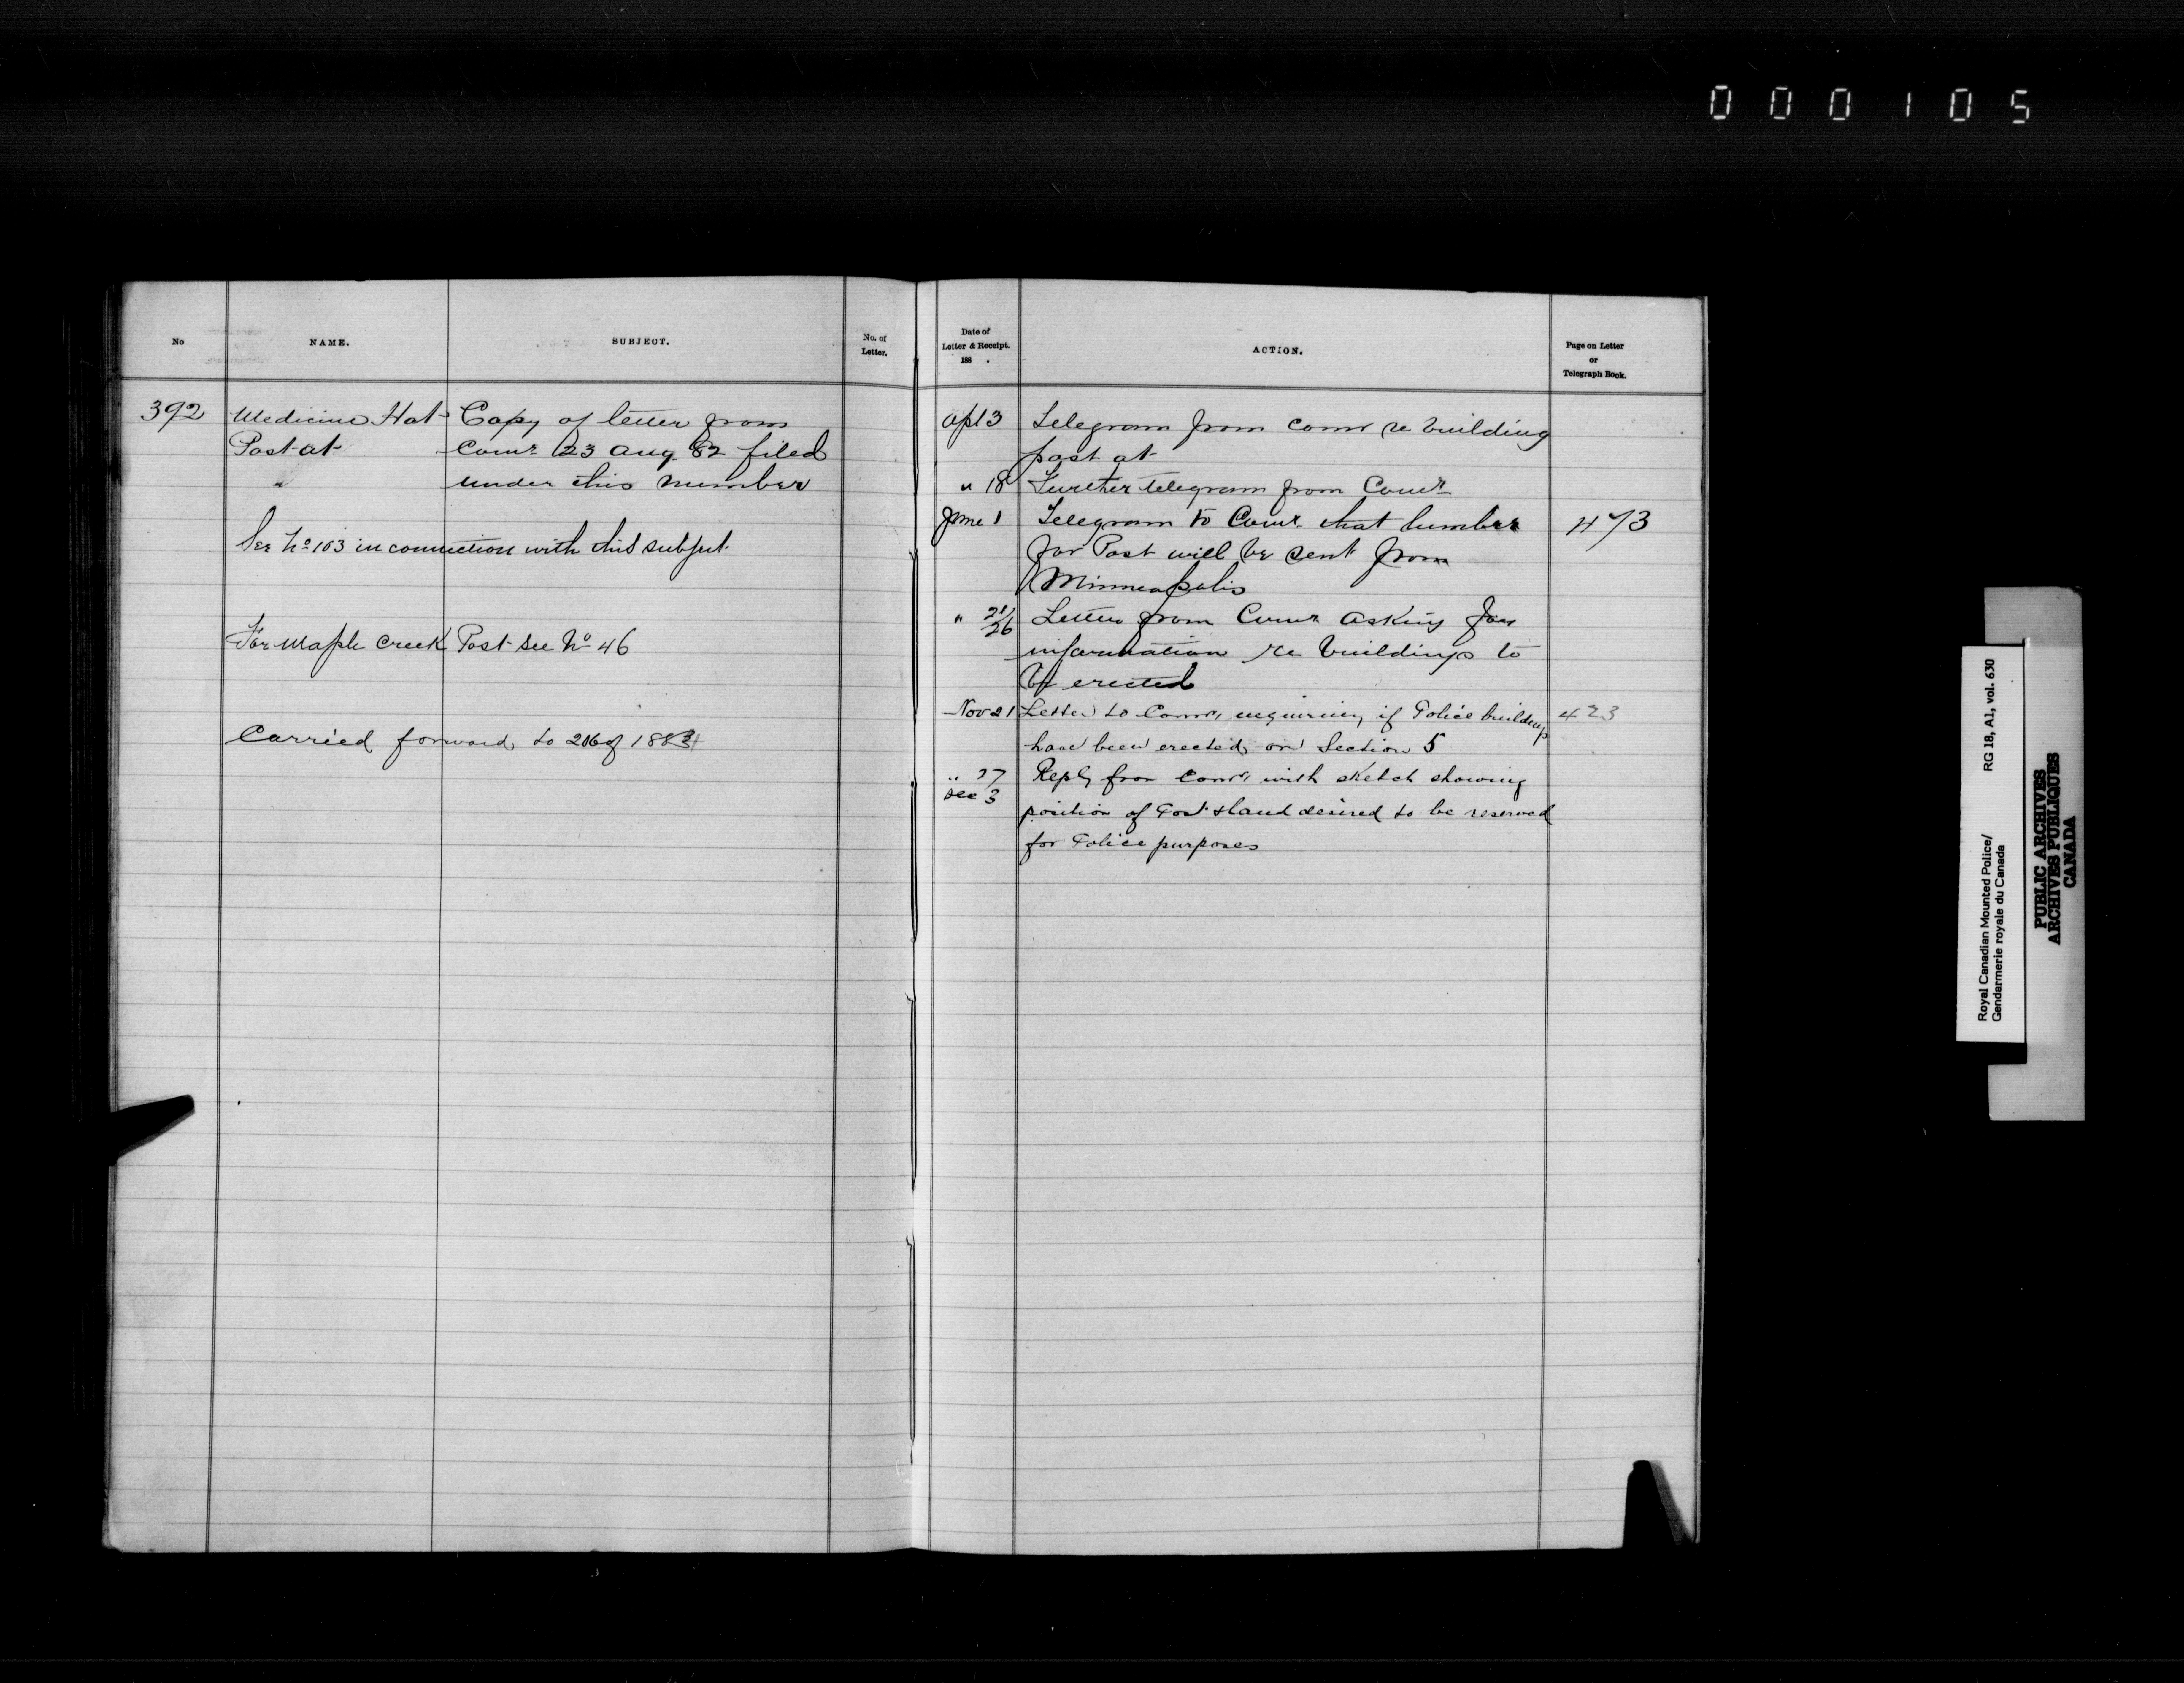 000105
No
NAME.
SUBJECT.
No. of
Letter.
392
Medicine Hat
Post at
"
Copy of letter from
Comr 23 Aug. 82 filed
under this number
See No 103 in connection with this subject.
For Maple Creek Post see No 46
Carried forward to 206 of 1884
Date of
Letter & Receipt.
188 .
ACTION.
Page on Letter
or
Telegraph Book.
Apl 3 Telegram from Comr re building
post at
" 18 Further telegram from Comr
June 1 Telegram to Comr that lumber 473
for Post will be sent from
Minneapolis
" 21/26 Letter from Comr asking for
information re buildings to
be erected
Nov 21 Letter to Comr enquiring if Police buildings 423
have been erected on Section 5
" 27 Reply from Comr with sketch showing
Dec 3
position of Post & land desired to be reserved
for Police purposes
Royal Canadian Mounted Police/
Gendarmerie royale du Canada
RG 18, A1, vol. 630
PUBLIC ARCHIVES
ARCHIVES PUBLIQUES
CANADA